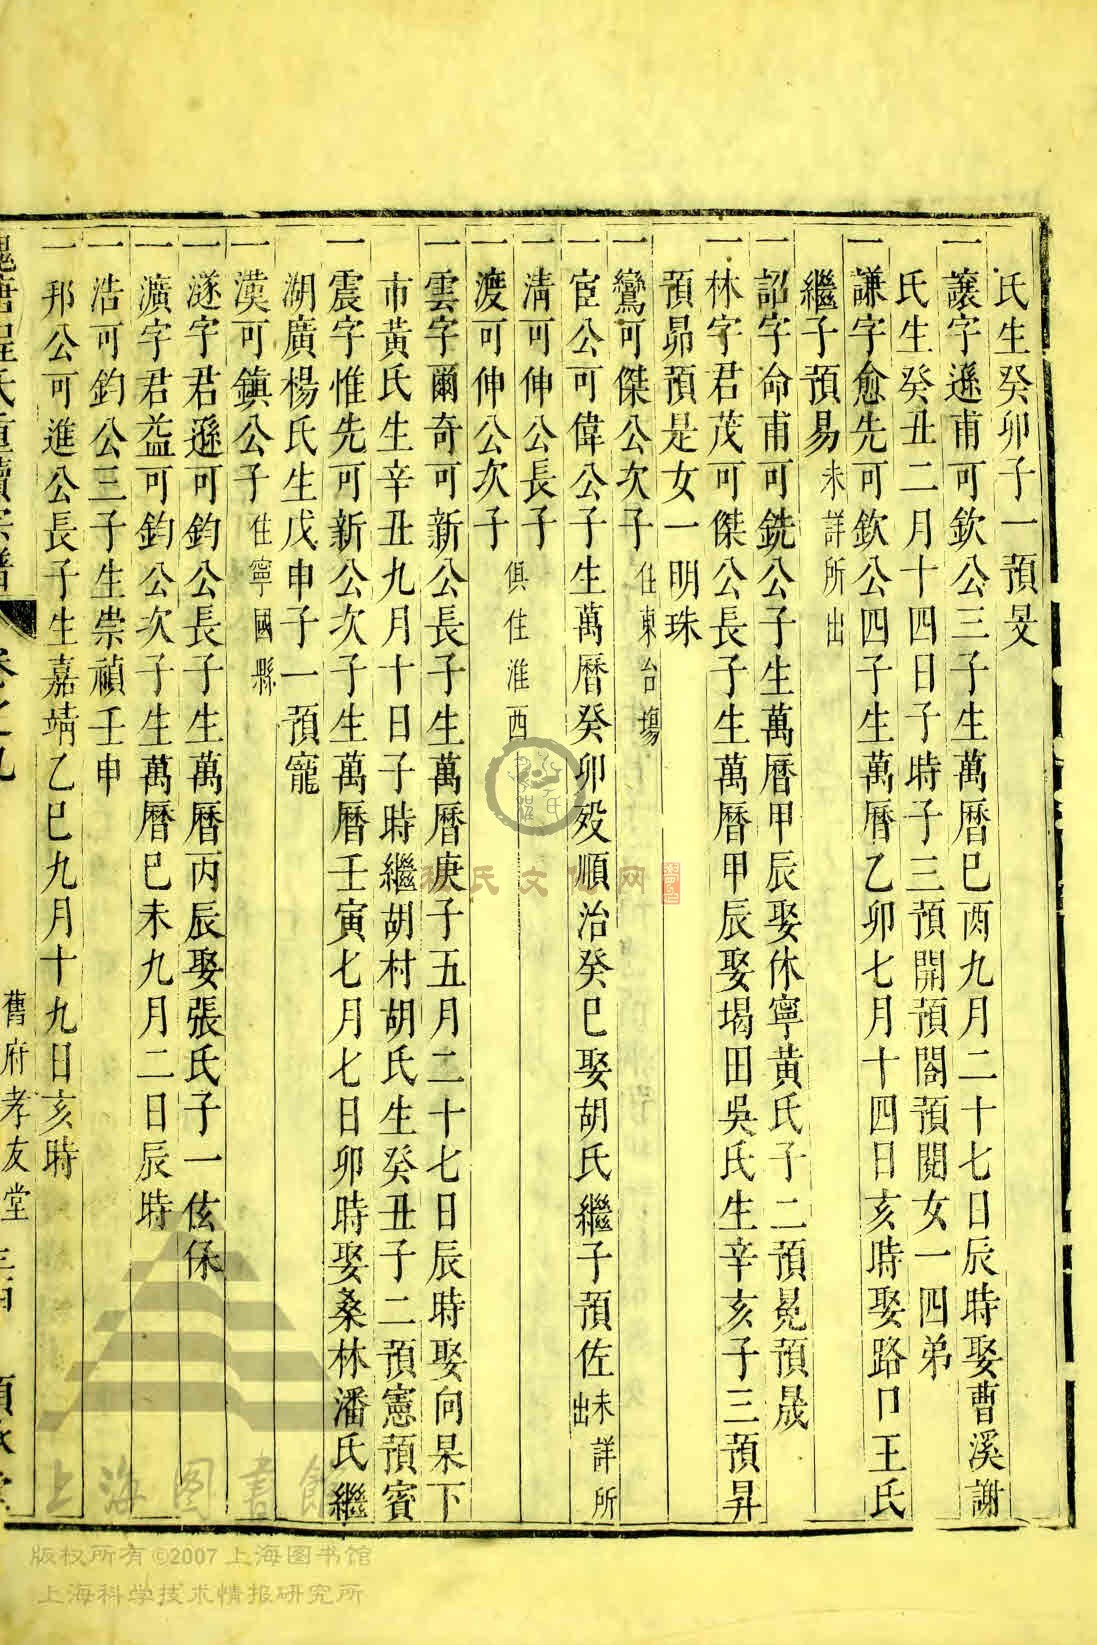 氏生癸卯子一預旻
一讓字遜甫可欽公三子生萬曆己酉九月二十七日辰時娶曹溪謝
氏生癸丑二月十四日子時子三預開預閤預閱女一四弟
一謙字愈先可欽公四子生萬曆乙卯七月十四日亥時娶路口王氏
繼子預易未詳所出
一詔字命甫可銑公子生萬曆甲辰娶休寧黃氏子二預冕預晟
一林字君茂可傑公長子生萬曆甲辰娶堨田吳氏生辛亥子三預昇
預昴預是女一明珠
一鸞可傑公次子住東台塲
一宦公可偉公子生萬曆癸卯歿順治癸巳娶胡氏繼子預佐未詳所出
一清可伸公長子
一渡可伸公次子俱住淮西
一雲字爾奇可新公長子生萬曆庚子五月二十七日辰時娶向杲下
市黃氏生辛丑九月十日子時繼胡村胡氏生癸丑子二預憲預賓
一震字惟先可新公次子生萬曆壬寅七月七日卯時娶桑林潘氏繼
湖廣楊氏生戊申子一預寵
一漢可鎮公子住寧國縣
一邃字君遜可鈞公長子生萬曆丙辰娶張氏子一伭保
一瀇字君益可鈞公次子生萬曆己未九月二日辰時
一浩可鈞公三子生崇禎壬申
一邦公可進公長子生嘉靖乙巳九月十九日亥時
程氏重續宗譜 卷之九 舊府孝友堂
程氏文化网
上海图書館
版权所有©2007上海图书馆
上海科学技术情报研究所